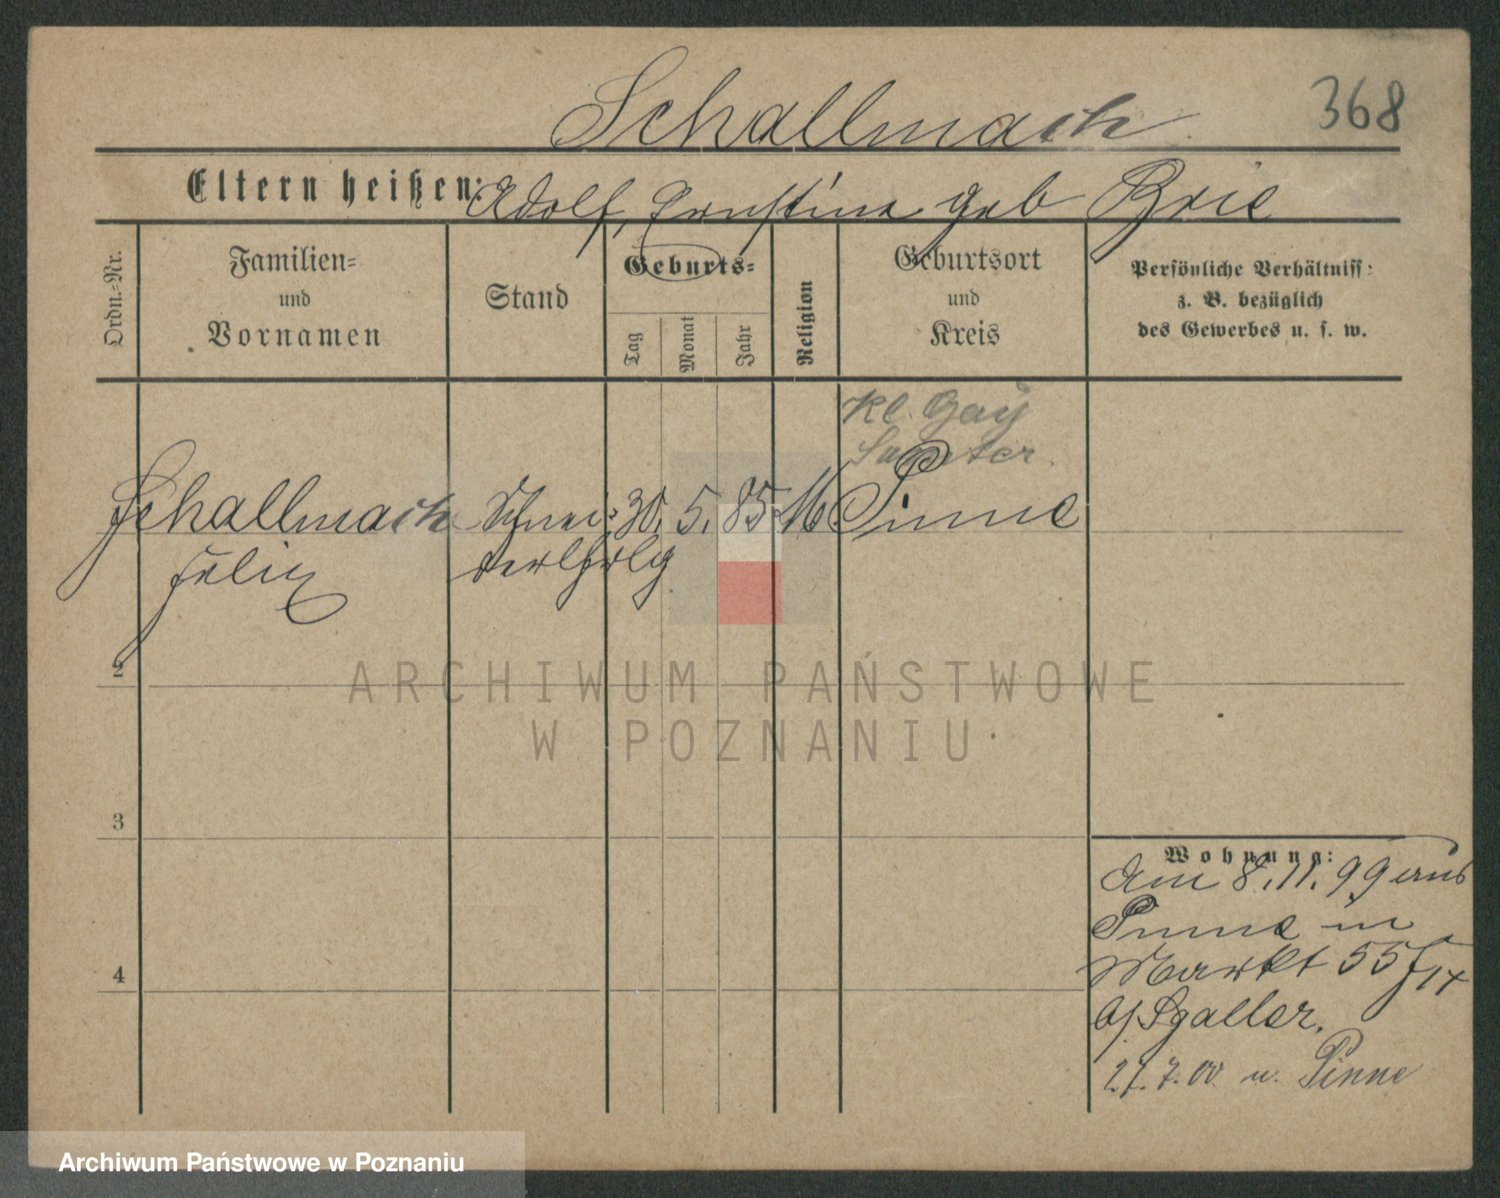 Schallmach
368
Eltern heißen: Adolf, Ernstine geb Brie
Ordn.-Nr.
Familien-
und
Vornamen
Stand
Geburts-
Tag
Monat
Jahr
Religion
Geburtsort
und
Kreis
Persönliche Verhältniss:
z. B. bezüglich
des Gewerbes u. s. w.
Kl. Gay
Samter.
Schallmach Schnei- 30. 5. 85 M Pinne
Felix derlhrlg
2
ARCHIWUM PAŃSTWOWE
W POZNANIU
3
Wohnung:
Am 8.11.99 aus
Pinne in
Markt 55
b/ Sgaller.
4
27.7.00 n. Pinne
Archiwum Państwowe w Poznaniu